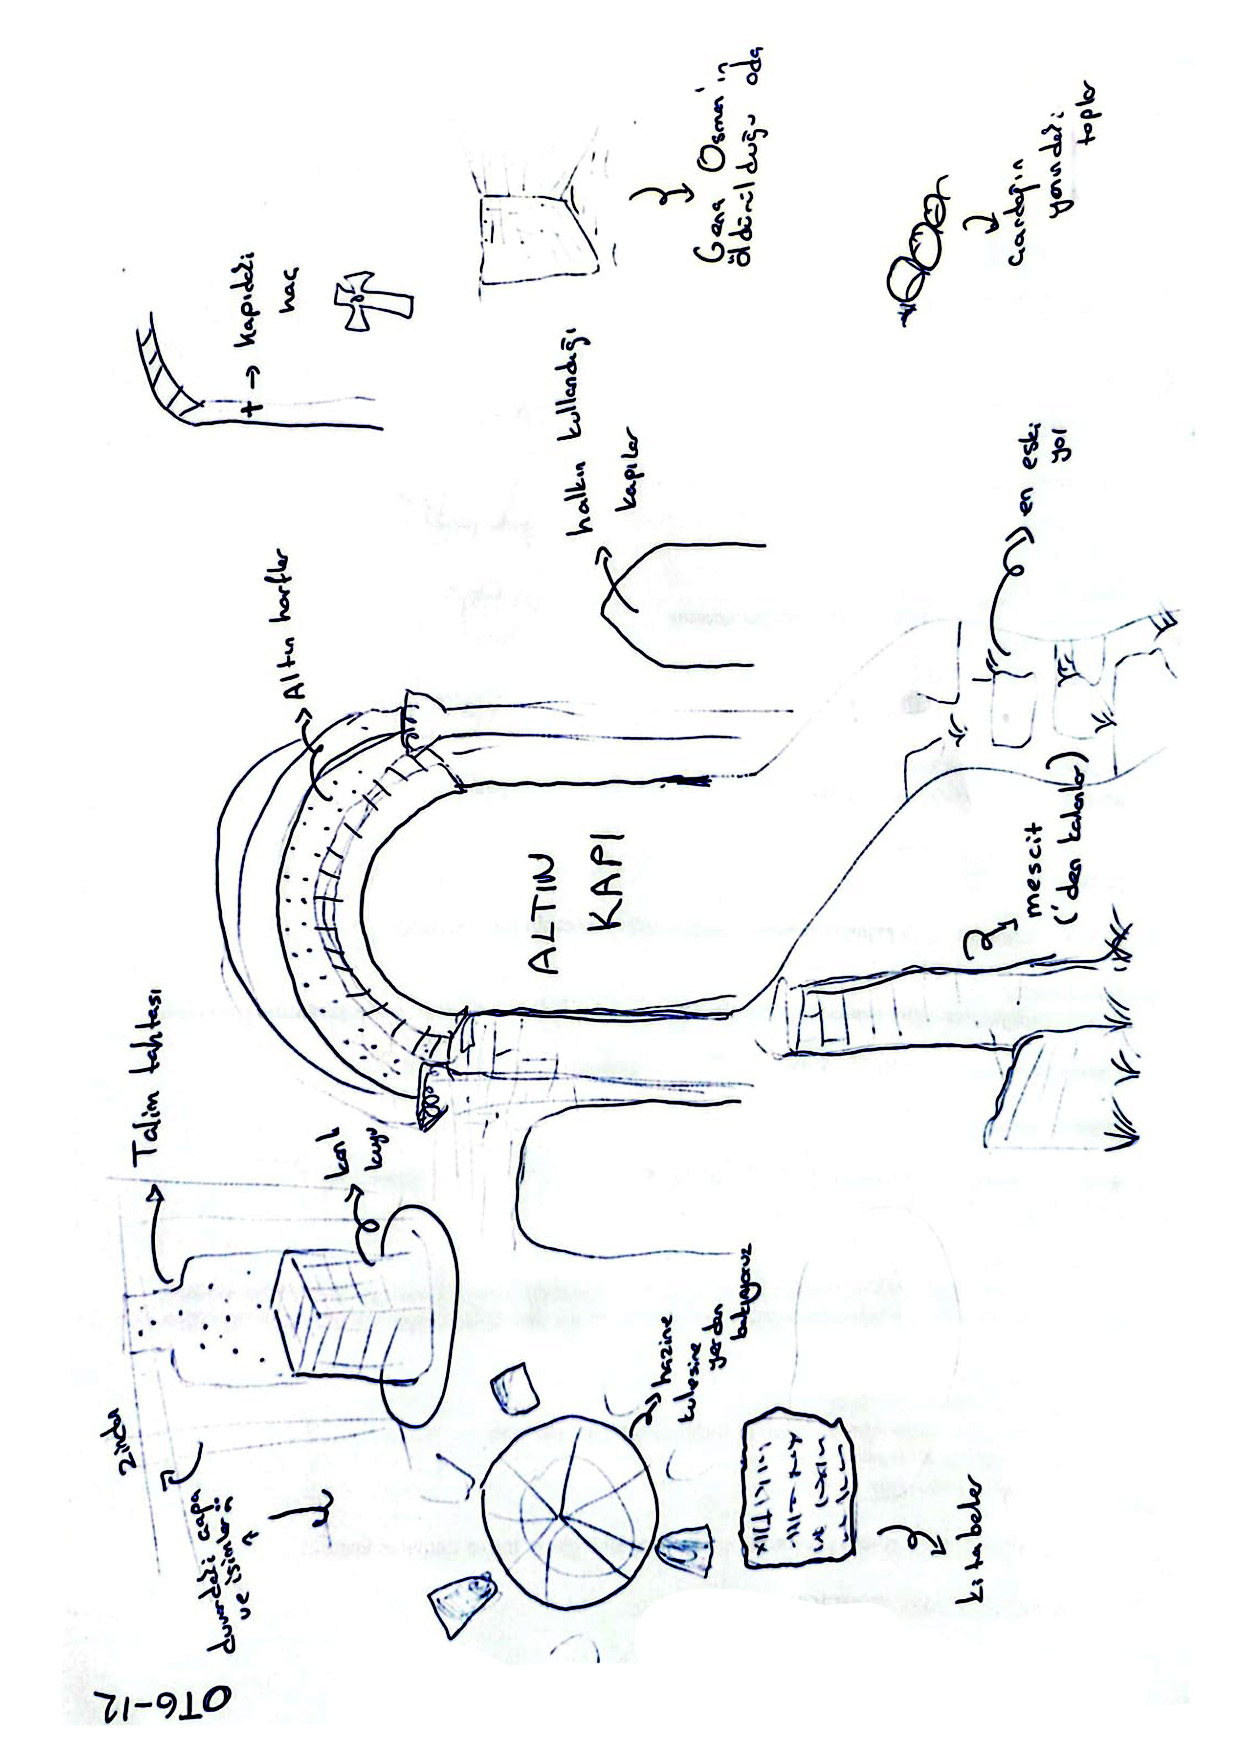 OT6-12
zindan
Talim tahtası
duvardaki çapa
ve isimler
kanlı
kuyu
Altın harfler
+ → kapıdaki
haç
ALTIN
KAPI
halkın kullandığı
kapılar
hazine
kulesine
yerden
bakıyoruz
Genç Osman'ın
öldürüldüğu oda
kitabeler
mescit
('den kalanlar)
en eski
yol
Çardağın
yanındaki
toplar